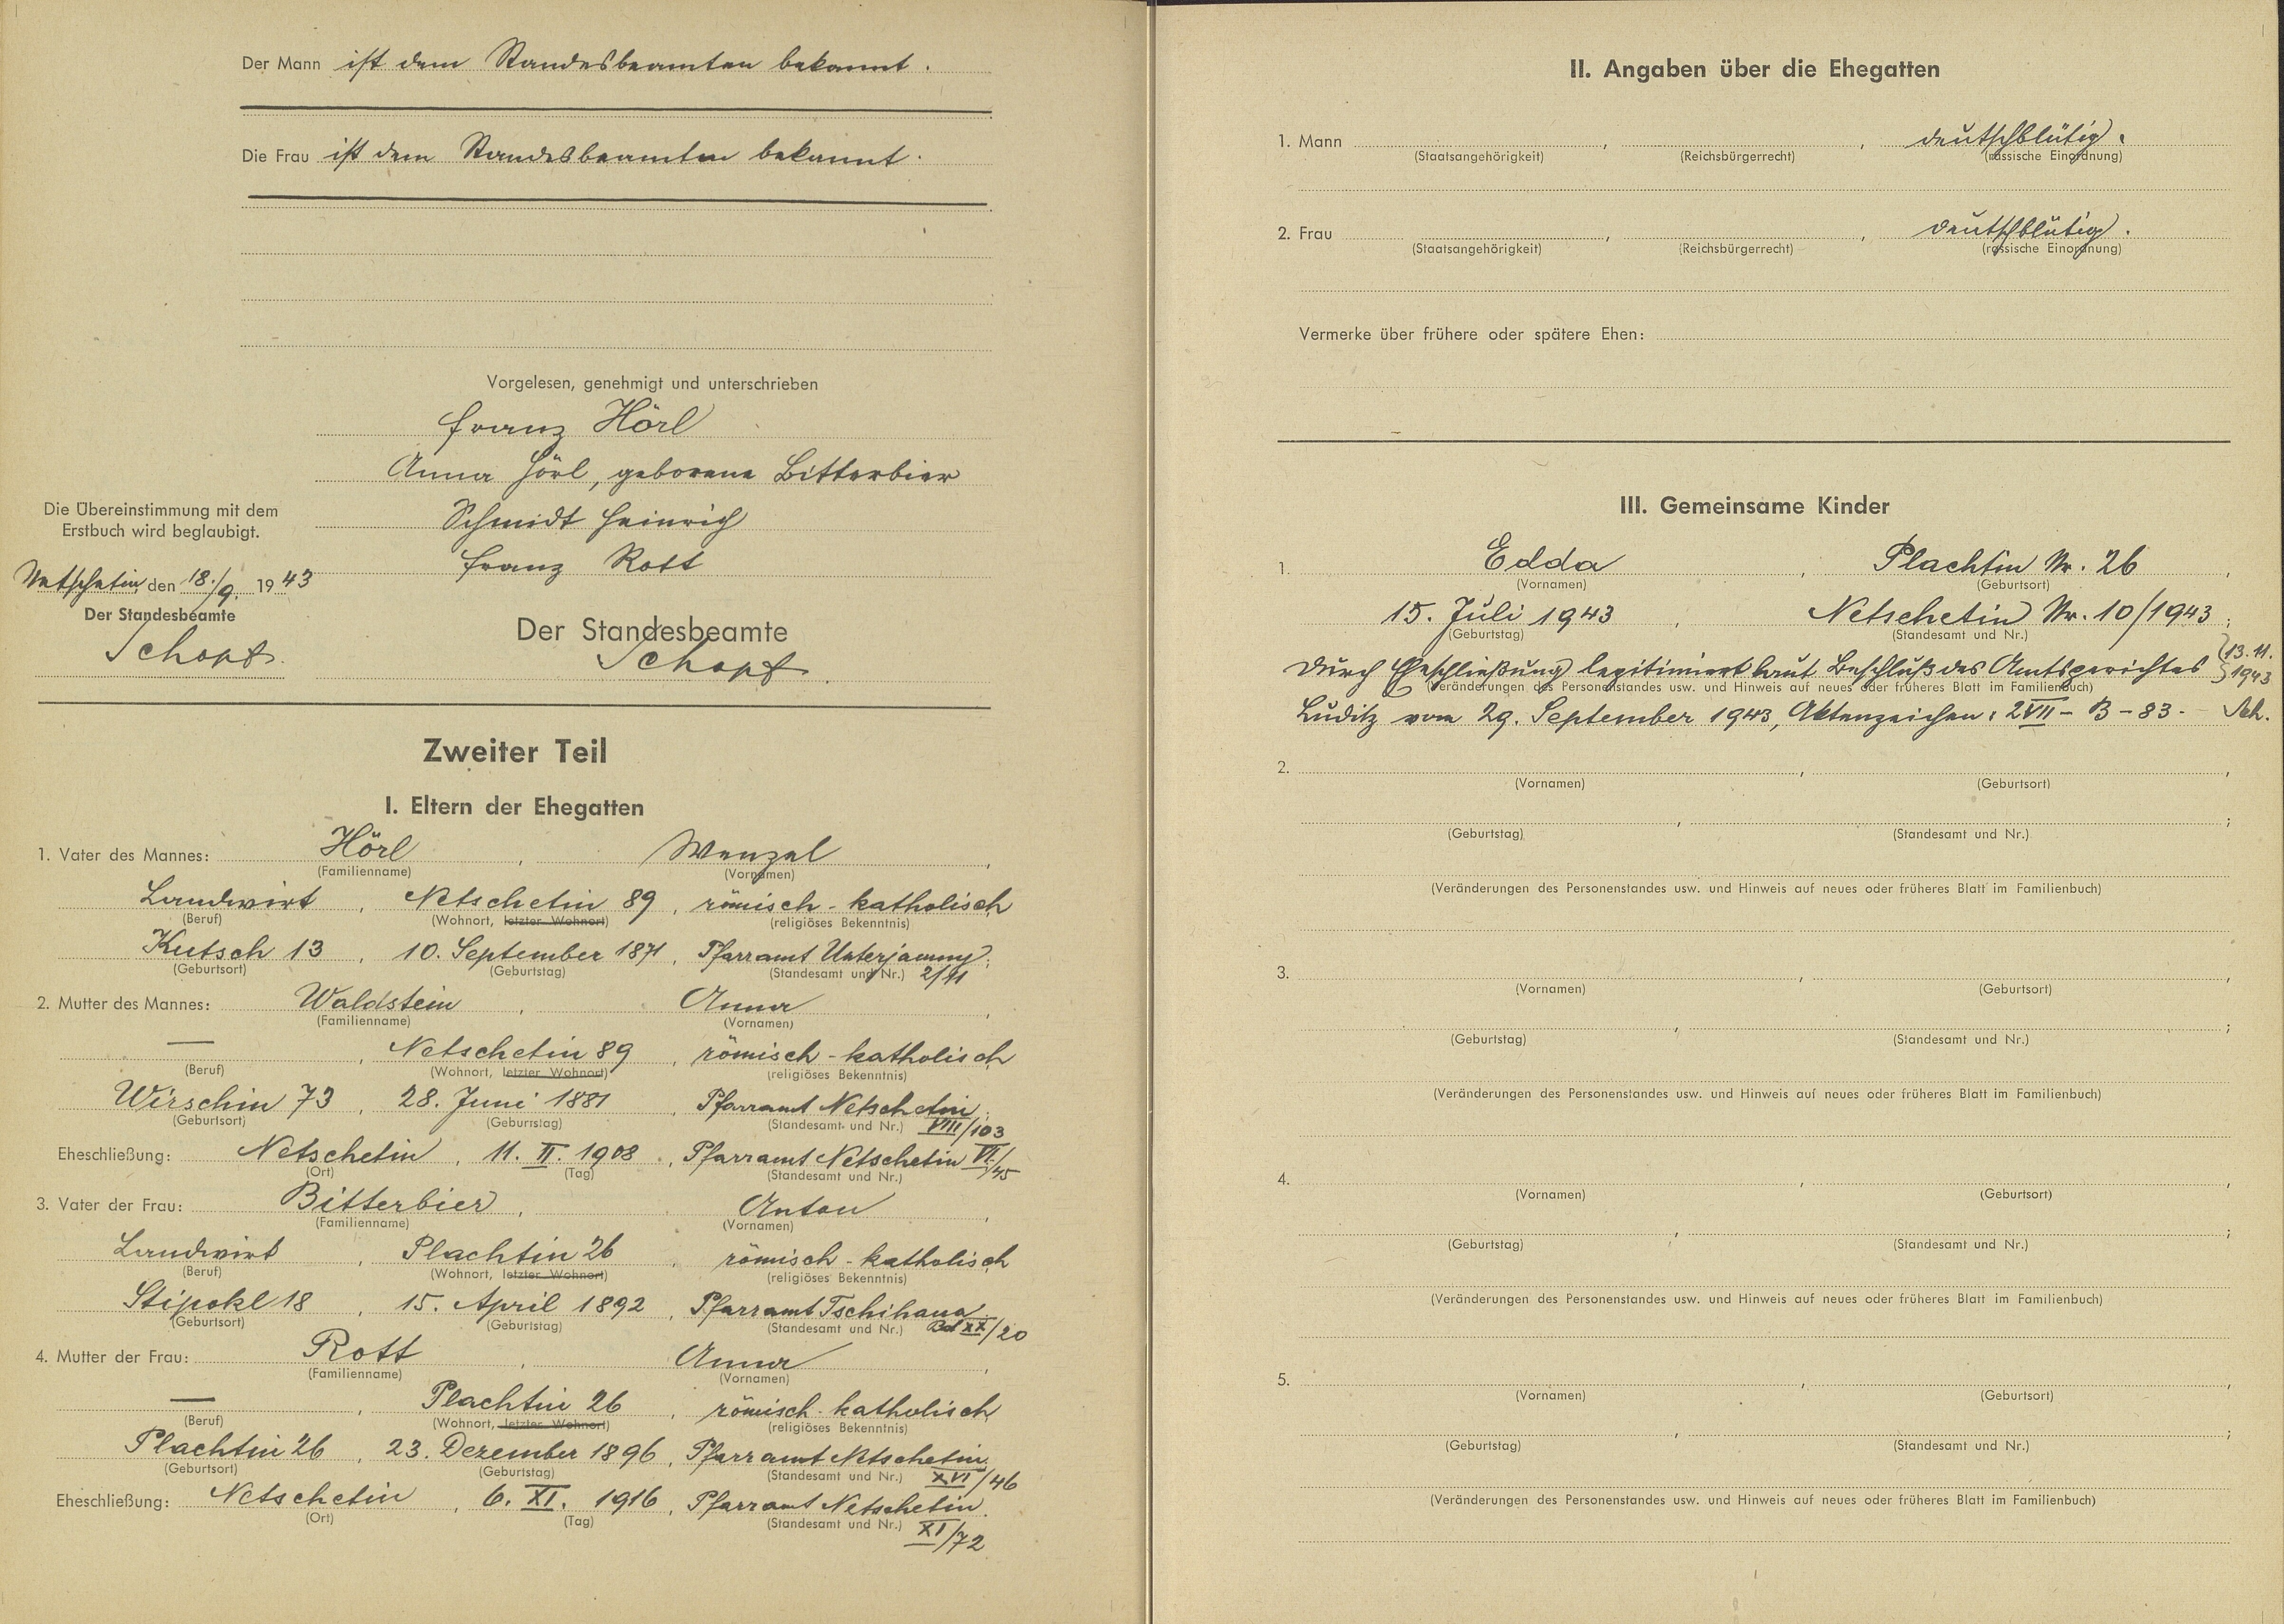 Der Mann ist dem Standesbeamten bekannt.
Die Frau ist dem Standesbeamten bekannt.
Vorgelesen, genehmigt und unterschrieben
Franz Hörl
Anna Hörl, geborene Bitterbier
Schmidt Heinrich
Franz Rott
Die Übereinstimmung mit dem
Erstbuch wird beglaubigt.
Netschetin, den 18./9. 1943
Der Standesbeamte
Schopf
Der Standesbeamte
Schopf
Zweiter Teil
I. Eltern der Ehegatten
1. Vater des Mannes: Hörl, Wenzel,
(Familienname) (Vornamen)
Landwirt, Netschetin 89, römisch-katholisch
(Beruf) (Wohnort, letzter Wohnort) (religiöses Bekenntnis)
Kutsch 13, 10. September 1871, Pfarramt Unterjamny;
(Geburtsort) (Geburtstag) (Standesamt und Nr.) 2/11
2. Mutter des Mannes: Waldstein, Anna,
(Familienname) (Vornamen)
—, Netschetin 89, römisch-katholisch
(Beruf) (Wohnort, letzter Wohnort) (religiöses Bekenntnis)
Wirschin 73, 28. Juni 1881, Pfarramt Netschetin;
(Geburtsort) (Geburrstag) (Standesamt und Nr.) VIII/103
Eheschließung: Netschetin, 11. II. 1908, Pfarramt Netschetin VI/45
(Ort) (Tag) (Standesamt und Nr.)
3. Vater der Frau: Bitterbier, Anton,
(Familienname) (Vornamen)
Landwirt, Plachtin 26, römisch-katholisch
(Beruf) (Wohnort, letzter Wohnort) (religiöses Bekenntnis)
Stipokl 18, 15. April 1892, Pfarramt Tschihana
(Geburtsort) (Geburtstag) (Standesamt und Nr.) Bd XX/20
4. Mutter der Frau: Rott, Anna,
(Familienname) (Vornamen)
—, Plachtin 26, römisch-katholisch
(Beruf) (Wohnort, letzter Wohnort) (religiöses Bekenntnis)
Plachtin 26, 23. Dezember 1896, Pfarramt Netschetin
(Geburtsort) (Geburtstag) (Standesamt und Nr.) XVI/46
Eheschließung: Netschetin, 6. XI. 1916, Pfarramt Netschetin.
(Ort) (Tag) (Standesamt und Nr.) XI/72
II. Angaben über die Ehegatten
1. Mann , , deutschblütig.
(Staatsangehörigkeit) (Reichsbürgerrecht) (rassische Einordnung)
2. Frau , , deutschblütig.
(Staatsangehörigkeit) (Reichsbürgerrecht) (rassische Einordnung)
Vermerke über frühere oder spätere Ehen:
III. Gemeinsame Kinder
1. Edda, Plachtin Nr. 26,
(Vornamen) (Geburtsort)
15. Juli 1943, Netschetin Nr. 10/1943;
(Geburtstag) (Standesamt und Nr.)
Durch Eheschließung legitimiert laut Beschluß des Amtsgerichtes 13.11. 1943
(Veränderungen des Personenstandes usw. und Hinweis auf neues oder früheres Blatt im Familienbuch)
Luditz vom 29. September 1943, Aktenzeichen: 2VII-B-83- Sch.
2. , ,
(Vornamen) (Geburtsort)
, ;
(Geburtstag) (Standesamt und Nr.)
(Veränderungen des Personenstandes usw. und Hinweis auf neues oder früheres Blatt im Familienbuch)
3. , ,
(Vornamen) (Geburtsort)
, ;
(Geburtstag) (Standesamt und Nr.)
(Veränderungen des Personenstandes usw. und Hinweis auf neues oder früheres Blatt im Familienbuch)
4. , ,
(Vornamen) (Geburtsort)
, ;
(Geburtstag) (Standesamt und Nr.)
(Veränderungen des Personenstandes usw. und Hinweis auf neues oder früheres Blatt im Familienbuch)
5. , ,
(Vornamen) (Geburtsort)
, ;
(Geburtstag) (Standesamt und Nr.)
(Veränderungen des Personenstandes usw. und Hinweis auf neues oder früheres Blatt im Familienbuch)